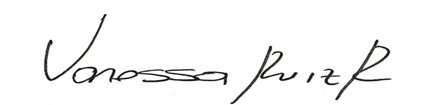 Vanessa Ruiz R